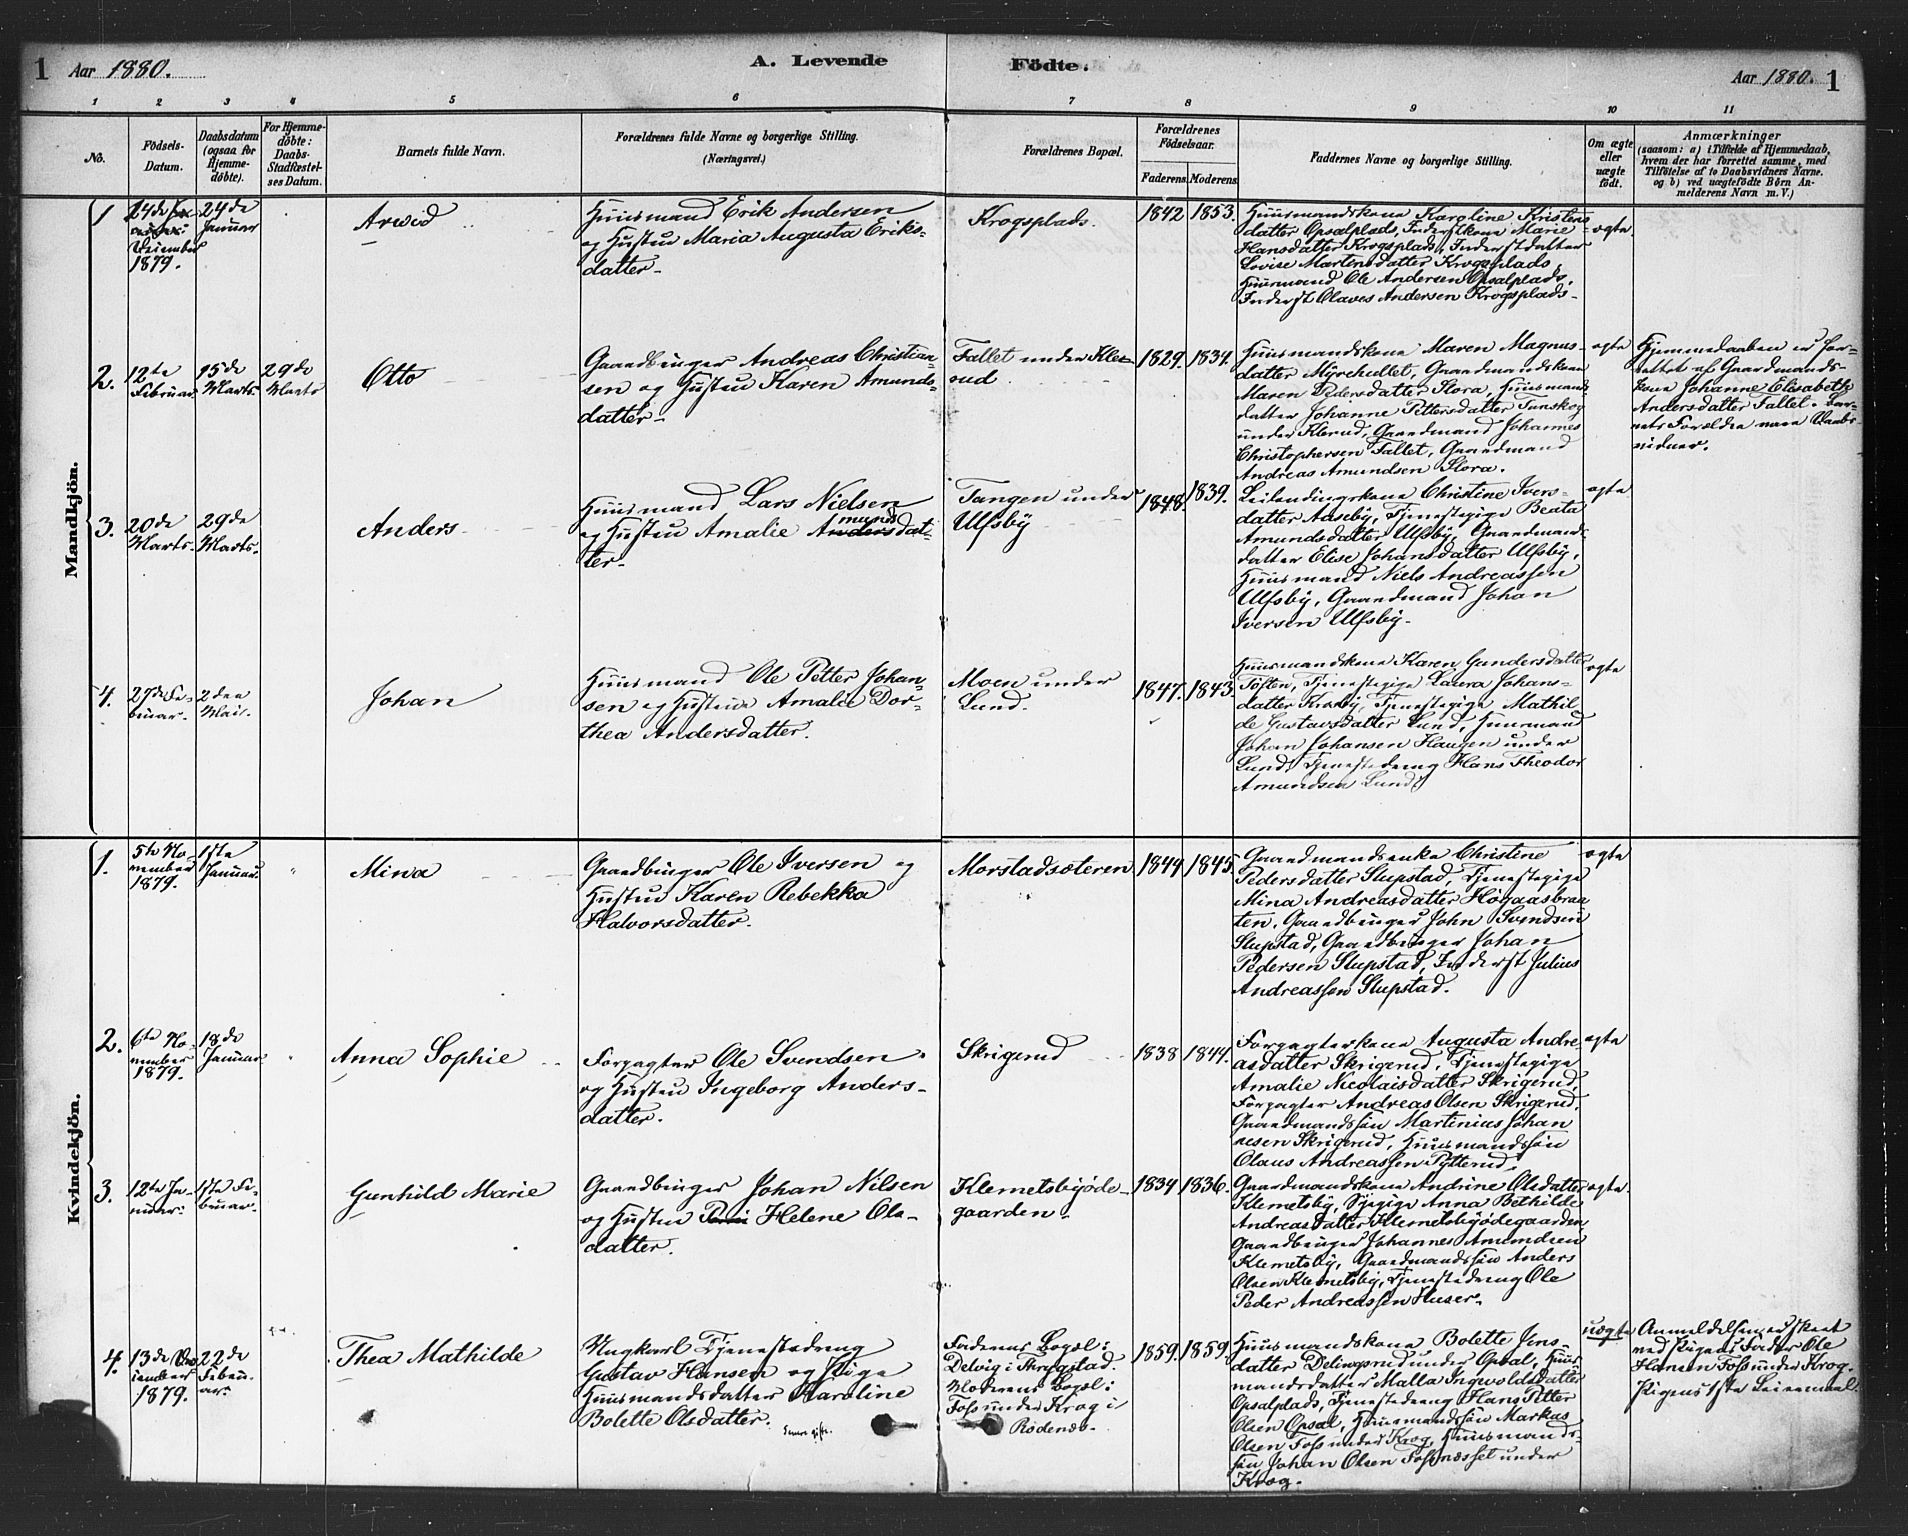 1 Aar 1880. A. Levende Födte. Aar 1880. 1
1 2 3 4 5 6 7 8 9 10 11
No.
Födsels-
Datum.
Daabsdatum
(ogsaa for
Hjemme-
döbte).
For Hjemme-
döbte:
Daabs-
Stadfæstel-
ses Datum.
Barnets fulde Navn.
Forældrenes fulde Navne og borgerlige Stilling.
(Næringsvei.)
Forældrenes Bopæl.
Forældrenes
Födselsaar.
Faderens. Moderens.
Faddernes Navne og borgerlige Stilling.
Om ægte
eller
uægte
födt.
Anmærkninger
(saasom: a) i Tilfælde af Hjemmedaab,
hvem der har forrettet samme, med
Tilföielse af to Daabsvidners Navne.
og b) ved uægtefödte Börn An-
melderens Navn m. V.)
Mandkjön.
1
24de
December
1879.
24de
Januar
Arwid
Huusmand Erik Andersen
og Hustru Maria Augusta Eriks-
datter.
Krogsplads.
1842 1853.
Huusmandskone Karoline Kristens
datter Opsalplads, Inderstkone Marie
Hansdatter Krogsplads, Inderstdatter
Lovise Martinsdatter Krogsplads,
Huusmand Ole Andersen Opsalplads,
Inderst Olaves Andersen Krogsplads-
ægte.
2.
12te
Februar.
15de
Marts.
29de
Marts
Otto
Gaardbruger Andreas Christian
sen og Hustru Karen Amunds-
datter-
Fallet under Kle-
rud.
1829. 1834.
Huusmandskone Maren Magnus-
datter Myrehellet, Gaardmandskone
Maren Pedersdatter Slora, Huusmands
datter Johanne Pettersdatter Tunskog
under Klerud, Gaardmand Johannes
Christophersen Fallet, Gaardmand
Andreas Amundsen Slora.
ægte
Hjemmedaaben er for-
rettet af Gaardmands-
kone Johanne Elisabeth
Andersdatter Fallet. Bar-
nets Forældre vare Daabs-
vidner.
3.
20de
Marts.
29de
Marts.
Anders
Huusmand Lars Nielsen
munds
og Hustru Amalie Andersdat-
ter-
Tangen under
Ulfsby
1848. 1839.
Leilendingskone Christine Ivers-
datter Aaseby, Tjenestepige Beata
Amundsdatter Ulfsby, Gaardmands-
datter Elise Johansdatter Ulfsby,
Huusmand Niels Andreassen
Ulfsby, Gaardmand Johan
Iversen Ulfsby-
ægte
4.
27de Fe-
bruar.
2den
Mai.
Johan
Huusmand Ole Petter Johan-
sen og Hustrue Amalie Dor-
thea Andersdatter.
Moen under
Lund.
1847. 1843.
Huusmandskone Karen Gundersdatter
Toften, Tjenestepige Laura Johans-
datter Krosby, Tjenestepige Mathil
de Gustavsdatter Lund, Huusmand
Johan Johansen Haugen under
Lund, Tjenestedreng Hans Theodor
Amundsen Lund.
ægte
Kvindekjön.
1.
5te No-
vember
1879.
1ste
Januar.
Mina
Gaardbruger Ole Iversen og
Hustru Karen Rebekka
Halvorsdatter.
Morstadsæteren
1844 1845.
Gaardmandsenke Christine
Pedersdatter Slupstad, Tjenestepige
Mina Andreasdatter Høgaasbraa
ten, Gaardbruger John Svendsen
Slupstad, Gaardbruger Johan
Pedersen Slupstad, Inderst Julius
Andreassen Slupstad.
ægte
2.
6te No-
vember
1879.
18de
Januar
Anna Sophie
Forpagter Ole Svendsen
og Hustru Ingeborg Anders-
datter.
Skrigerud
1838 1844.
Forpagterkone Augusta Andre
asdatter Skrigerud, Tjenestepige
Amalie Nicolaisdatter Skrigerud,
Forpagter Andreas Olsen Skrigerud,
Gaardmandssøn Martinius Johan
nesen Skrigerud, Huusmandssøn
Olaus Andreassen Pytterud.
ægte
3.
12te Ja-
nuar.
1ste Fe-
bruar.
Gunhild Marie
Gaardbruger Johan Nilsen
og Hustru Helene Ols-
datter.
Klemetsbyøde-
gaarden-
1834 1836.
Gaardmandskone Andrine Olsdatter
Klemetsby, Sypige Anna Bethilde
Andreasdatter Klemetsbyødegaarden
Gaardbruger Johannes Amundsen
Klemetsby, Gaardmandssøn Anders
Olsen Klemetsby, Tjenestedreng Ole
Peder Andreassen Huser-
ægte.
4.
13de De
cember
1879.
22de
Februar.
Thea Mathilde
Ungkarl Tjenestedreng
Gustav Hansen og Pige
Huusmandsdatter Karoline
Bolette Olsdatter. Senere gifte.
Faderens Bopæl:
Delvig i Skrygstad.
Moderens Bopæl:
Foss under Krog i
Rødenæs-
1859. 1859.
Huusmandskone Bolette Jens
datter Delingsrud under Opsal, Huus
mandsdatter Malla Ingvoldsdatter
Opsalplads, Tjenestedreng Hans Petter
Olsen Opsal, Huusmandssøn Markus
Olsen Foss under Krog, Huusmands-
søn Johan Olsen Fossnæsset under
Krog.
uægte
Anmeldelsen er skeet
ved Pigens Fader Ole
Hansen Foss under Krog.
Pigens 1ste Leiermaal